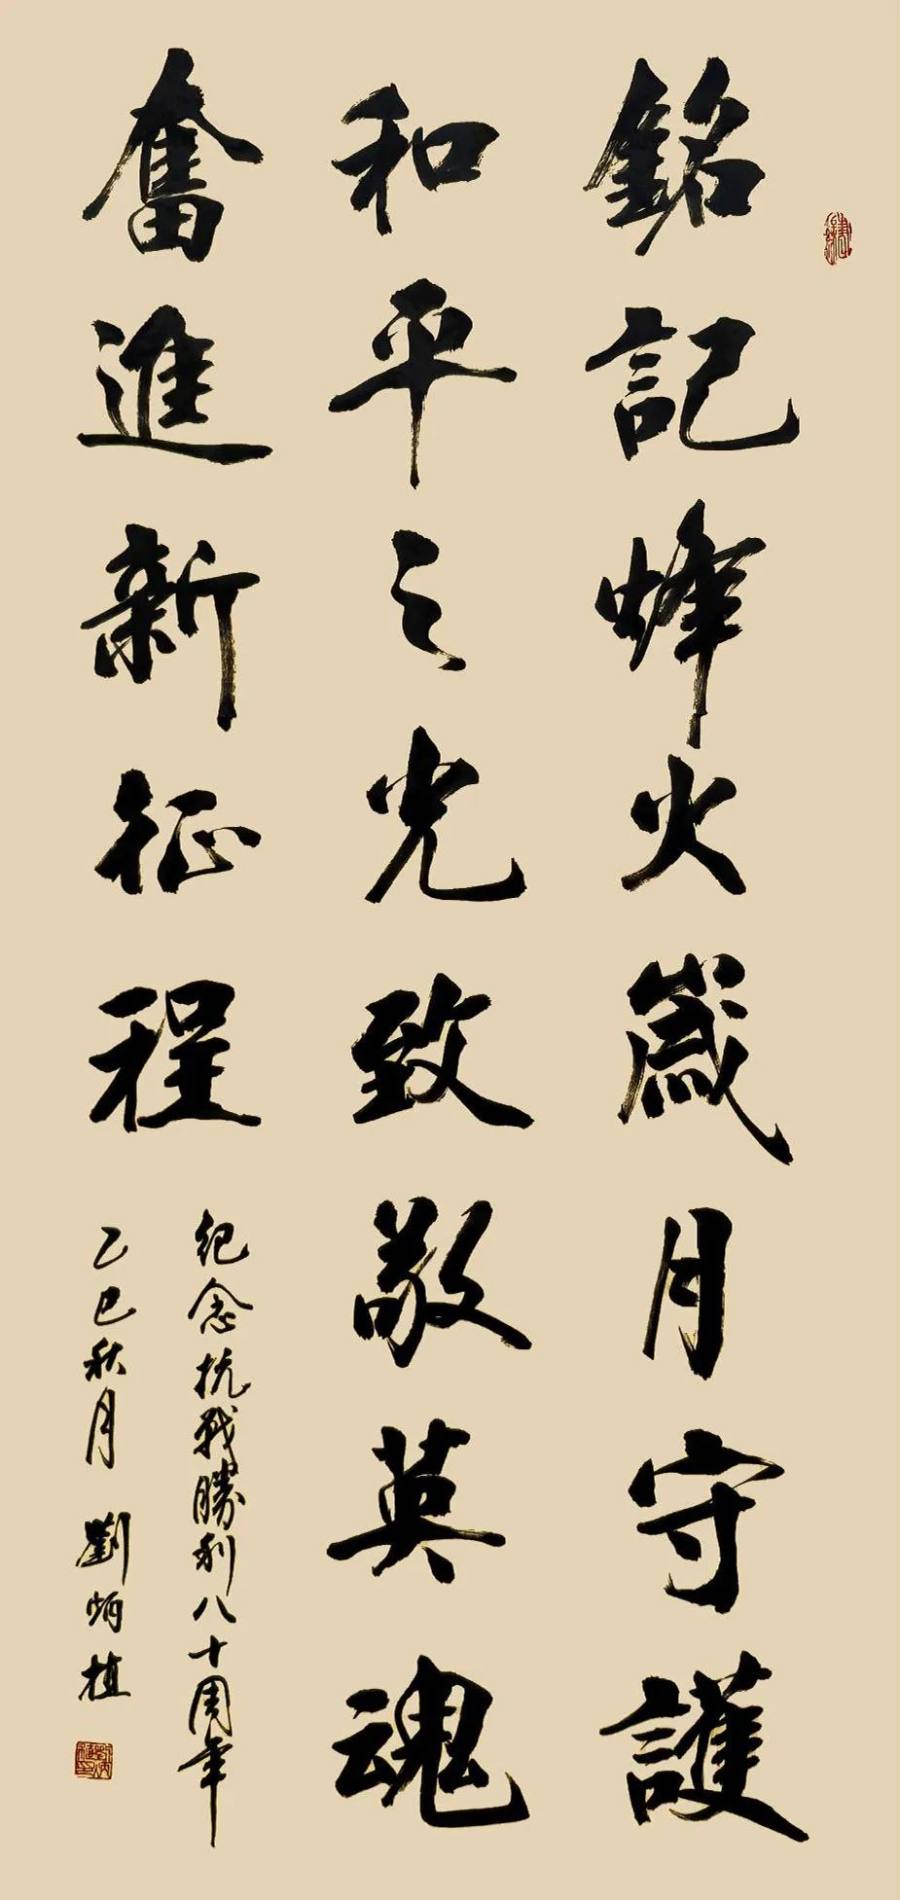 銘記烽火歲月守護
和平之光致敬英魂
奮進新征程
纪念抗戰勝利八十周年
乙巳秋月 劉炳植